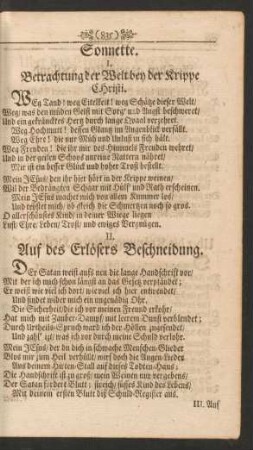 Sonnette.
I.
Betrachtung der Welt bey der Krippe
Christi.
WEg Tand! weg Eitelkeit! weg Schätze dieser Welt/
Weg/ was den müden Geist mit Sorg' und Angst beschweret/
Und ein gekräncktes Hertz durch lange Quaal verzehret.
Weg Hochmuth! dessen Glantz im Augenblick verfällt.
Weg Ehre! die nur Müh und Unlust in sich hält.
Weg Freuden! die ihr mir des Himmels Freuden wehret/
Und in der geilen Schoos nur eine Nattern nähret/
Mir ist ein besser Glück und hoher Trost bestellt.
Mein JEsus/ den ihr hier hört in der Krippe weinen/
Wil der Bedrängten Schaar mit Hülff und Rath erscheinen.
Mein JEsus machet mich von allem Kummer los/
Und tröstet mich/ ob gleich die Schmertzen noch so gros.
O allerschönstes Kind/ in deiner Wiege liegen
Lust/ Ehre/ Leben/ Trost/ und ewiges Vergnügen.
II.
Auf des Erlösers Beschneidung.
DEr Satan weist aufs neu die lange Handschrift vor/
Mit der ich mich schon längst an das Gesetz verpfändet;
Er weiß wie viel ich dort/ wie viel ich hier entwendet/
Und findet wider mich ein ungenädig Ohr.
Die Sicherheit/ die ich vor meinen Freund erkohr/
Hat mich mit Zauber-Dampf/ mit leerem Dunst verblendet;
Durch Urtheils-Spruch ward ich der Höllen zugesendet/
Und zahl' itzt/ was ich vor durch meine Schuld verlohr.
Mein JEsus/ der du dich in schwache Menschen-Glieder
Blos mir zum Heil verhüllt/ wirf doch die Augen-Lieder
Aus deinem harten Stall auf dieses Todten-Haus;
Die Handschrift ist zu groß/ mein Weinen nur vergebens/
Der Satan fordert Blutt; streich/ süsses Kind des Lebens/
Mit deinem ersten Blutt dis Schuld-Register aus.
III. Auf